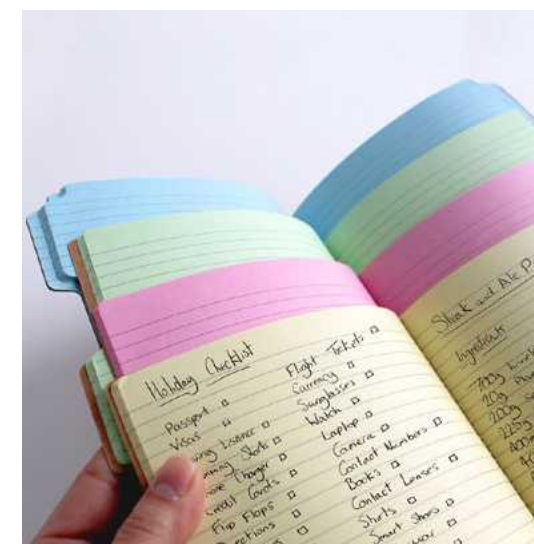 Holiday Checklist
Passport
Visas
Shorts
Charger
Credit Cards
Flip Flops
Flight Tickets
Currency
Sunglasses
Watch
Laptop
Camera
Contact Numbers
Books
Contact Lenses
Shirts
Smart Shoes
Steak and Ale P
Ingredients
700g
20g
200g
225g
400m